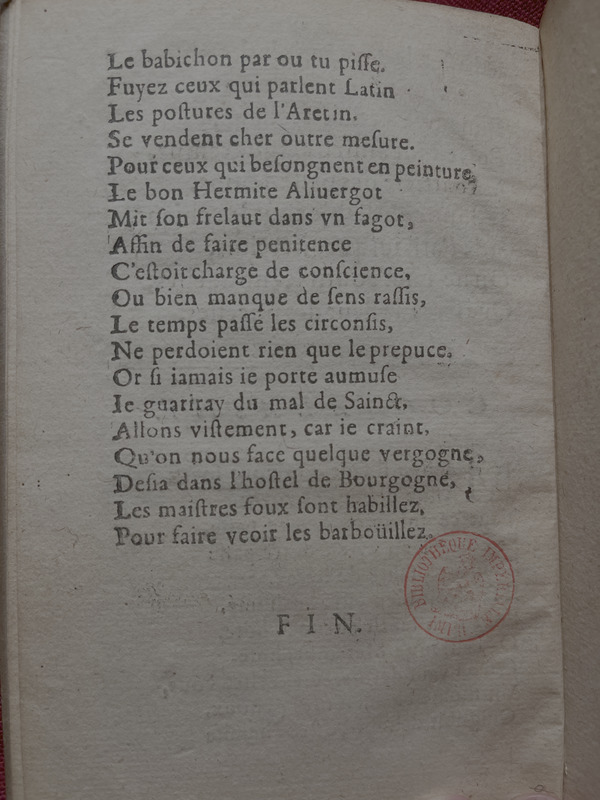 Le babichon par ou tu piſſe.
Fuyez ceux qui parlent Latin
Les poſtures de l'Aretin.
Se vendent cher outre meſure.
Pour ceux qui beſongnent en peinture,
Le bon Hermite Aliuergot
Mit ſon frelaut dans vn fagot,
Aſſin de faire penitence
C'eſtoit charge de conſcience,
Ou bien manque de ſens raſſis,
Le temps paſſé les circonſis,
Ne perdoient rien que le prepuce.
Or ſi iamais ie porte aumuſe
Ie guariray du mal de Sainct,
Allons viſtement, car ie craint,
Qu'on nous face quelque vergogne,
Deſia dans l'hoſtel de Bourgogne,
Les maiſtres foux ſont habillez,
Pour faire veoir les barboüillez.
FIN.
BIBLIOTHEQUE IMPERIALE